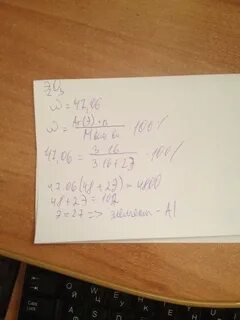 Э₂O₃
ω = 47,06
ω = Ar(Э)·n / M · 100%
47,06 = 3·16 / 3·16+2Э · 100%
47.06(48+2Э) = 4800
48+2Э = 102
Э = 27 => элемент - Al